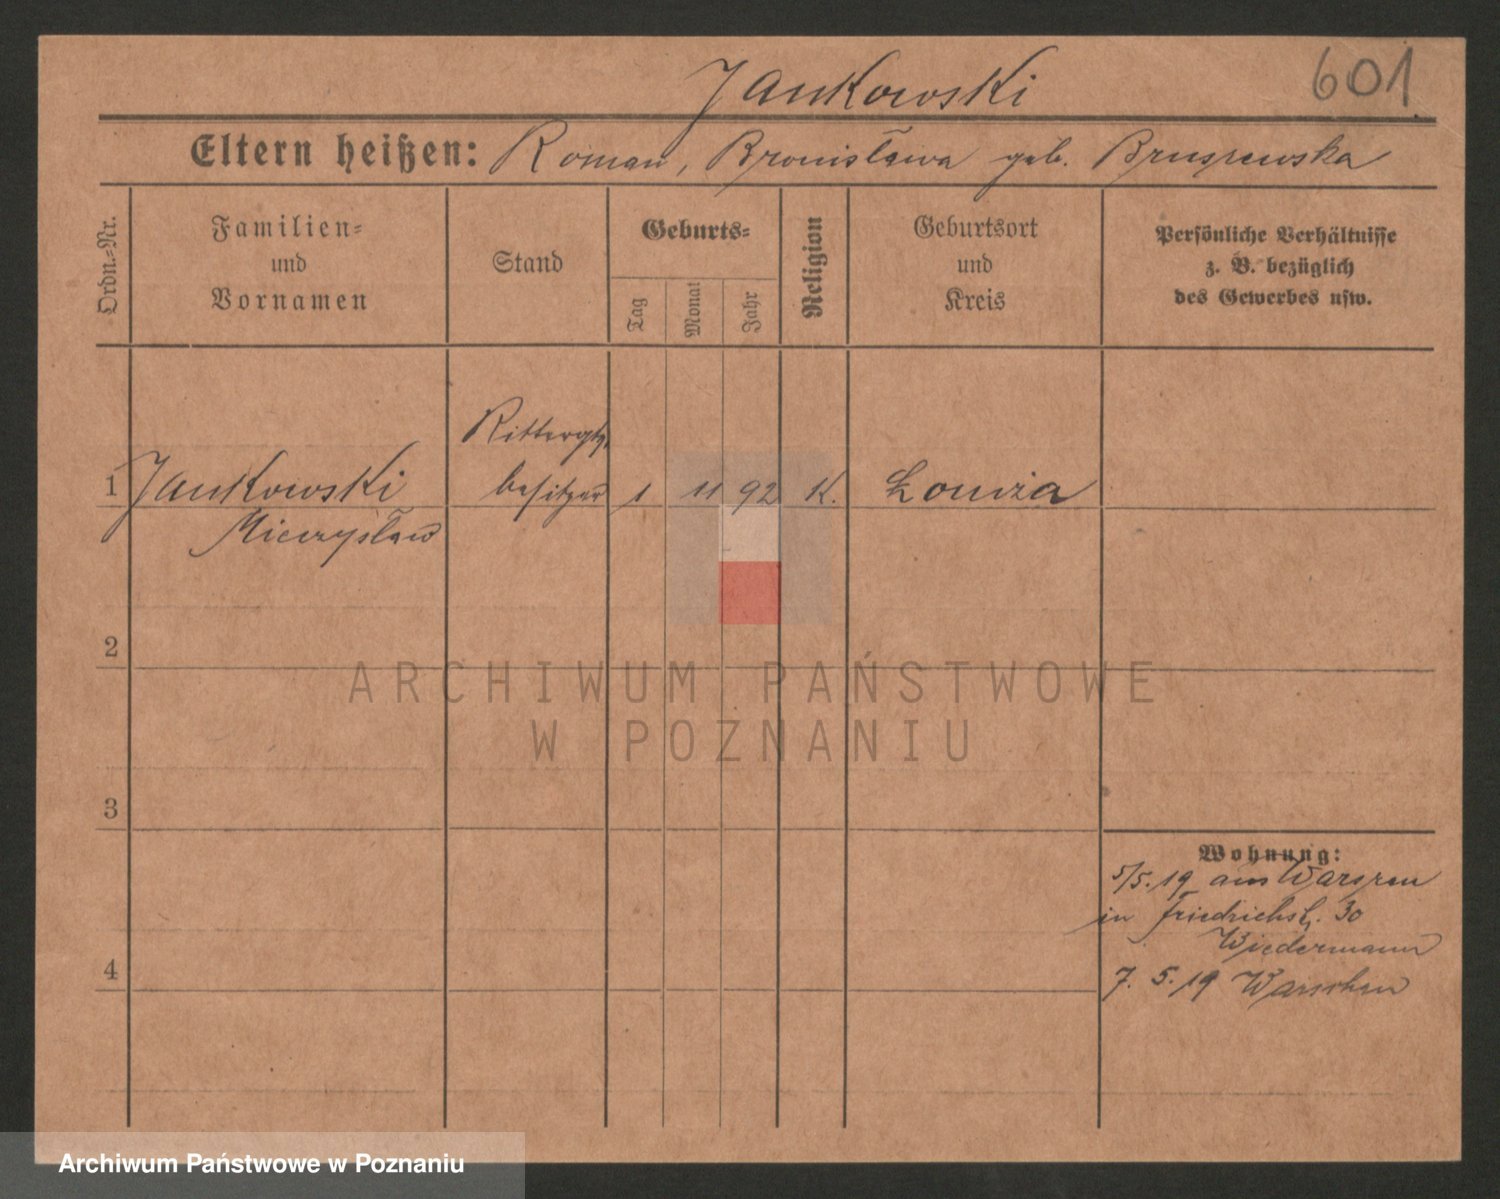 Jankowski
601
Eltern heißen: Roman, Bronisława geb. Bruszewska
Ordn.-Nr.
Familien-
und
Vornamen
Stand
Geburts-
Tag
Monat
Jahr
Religion
Geburtsort
und
Kreis
Persönliche Verhältnisse
z. B. bezüglich
des Gewerbes usw.
1 Jankowski
Mieczysław
Rittergts.
besitzer
1 11 92 K. Łomża
2
3
4
Wohnung:
5/5.19 aus
in Friedrichst. 30
Wiedermann
7. 5. 19
ARCHIWUM PAŃSTWOWE
W POZNANIU
Archiwum Państwowe w Poznaniu